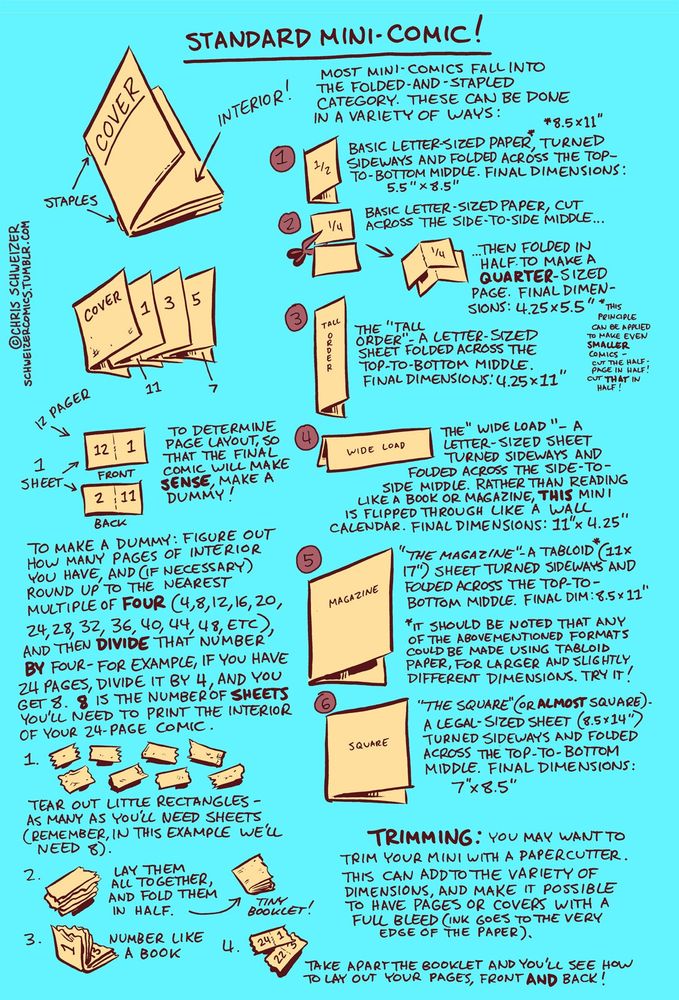 STANDARD MINI-COMIC!
COVER
INTERIOR!
STAPLES
MOST MINI-COMICS FALL INTO
THE FOLDED-AND-STAPLED
CATEGORY. THESE CAN BE DONE
IN A VARIETY OF WAYS:
*8.5x11"
1
1/2
BASIC LETTER-SIZED PAPER,* TURNED
SIDEWAYS AND FOLDED ACROSS THE TOP-
TO-BOTTOM MIDDLE. FINAL DIMENSIONS:
5.5" x 8.5"
2
1/4
BASIC LETTER-SIZED PAPER, CUT
ACROSS THE SIDE-TO-SIDE MIDDLE...
1/4
...THEN FOLDED IN
HALF TO MAKE A
QUARTER-SIZED
PAGE. FINAL DIMEN-
SIONS: 4.25x5.5"
*THIS
PRINCIPLE
CAN BE APPLIED
TO MAKE EVEN
SMALLER
COMICS-
CUT THE HALF-
PAGE IN HALF!
CUT THAT IN
HALF!
3
TALL
ORDER
THE "TALL
ORDER"- A LETTER-SIZED
SHEET FOLDED ACROSS THE
TOP-TO-BOTTOM MIDDLE.
FINAL DIMENSIONS: 4.25x11"
4
WIDE LOAD
THE "WIDE LOAD"- A
LETTER-SIZED SHEET
TURNED SIDEWAYS AND
FOLDED ACROSS THE SIDE-TO-
SIDE MIDDLE. RATHER THAN READING
LIKE A BOOK OR MAGAZINE, THIS MINI
IS FLIPPED THROUGH LIKE A WALL
CALENDAR. FINAL DIMENSIONS: 11"x 4.25"
5
MAGAZINE
"THE MAGAZINE"- A TABLOID* (11x
17") SHEET TURNED SIDEWAYS AND
FOLDED ACROSS THE TOP-TO-
BOTTOM MIDDLE. FINAL DIM: 8.5x11"
*IT SHOULD BE NOTED THAT ANY
OF THE ABOVEMENTIONED FORMATS
COULD BE MADE USING TABLOID
PAPER, FOR LARGER AND SLIGHTLY
DIFFERENT DIMENSIONS. TRY IT!
6
SQUARE
"THE SQUARE" (OR ALMOST SQUARE)-
A LEGAL-SIZED SHEET (8.5x14")
TURNED SIDEWAYS AND FOLDED
ACROSS THE TOP-TO-BOTTOM
MIDDLE. FINAL DIMENSIONS:
7"x8.5"
TRIMMING: YOU MAY WANT TO
TRIM YOUR MINI WITH A PAPERCUTTER.
THIS CAN ADD TO THE VARIETY OF
DIMENSIONS, AND MAKE IT POSSIBLE
TO HAVE PAGES OR COVERS WITH A
FULL BLEED (INK GOES TO THE VERY
EDGE OF THE PAPER).
©CHRIS SCHWEIZER
SCHWEIZERCOMICS.TUMBLR.COM
COVER
1
3
5
11
7
12 PAGER
1
SHEET
12 1
FRONT
2 11
BACK
TO DETERMINE
PAGE LAYOUT, SO
THAT THE FINAL
COMIC WILL MAKE
SENSE, MAKE A
DUMMY!
TO MAKE A DUMMY: FIGURE OUT
HOW MANY PAGES OF INTERIOR
YOU HAVE, AND (IF NECESSARY)
ROUND UP TO THE NEAREST
MULTIPLE OF FOUR (4,8,12,16,20,
24,28,32,36,40,44,48, ETC),
AND THEN DIVIDE THAT NUMBER
BY FOUR- FOR EXAMPLE, IF YOU HAVE
24 PAGES, DIVIDE IT BY 4, AND YOU
GET 8. 8 IS THE NUMBER OF SHEETS
YOU'LL NEED TO PRINT THE INTERIOR
OF YOUR 24-PAGE COMIC.
1.
TEAR OUT LITTLE RECTANGLES-
AS MANY AS YOU'LL NEED SHEETS
(REMEMBER, IN THIS EXAMPLE WE'LL
NEED 8).
2.
LAY THEM
ALL TOGETHER,
AND FOLD THEM
IN HALF.
TINY
BOOKLET!
3.
2 3
NUMBER LIKE
A BOOK
4.
24 1
22 5
TAKE APART THE BOOKLET AND YOU'LL SEE HOW
TO LAY OUT YOUR PAGES, FRONT AND BACK!